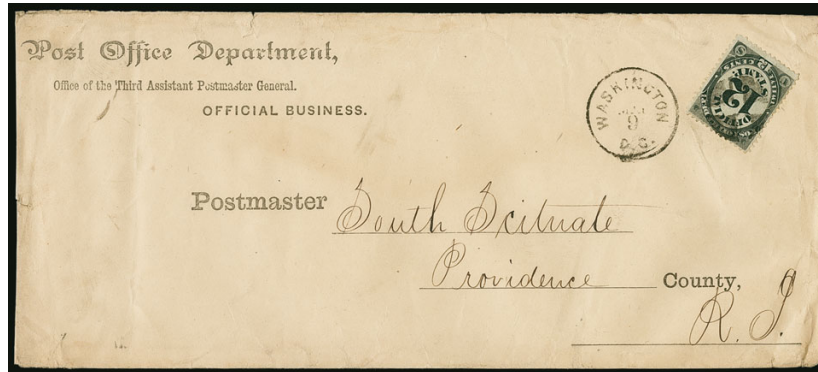 Post Office Department,
Office of the Third Assistant Postmaster General.
OFFICIAL BUSINESS.
WASHINGTON
9
D.C.
12
Postmaster South Scituate
Providence County,
R. I.